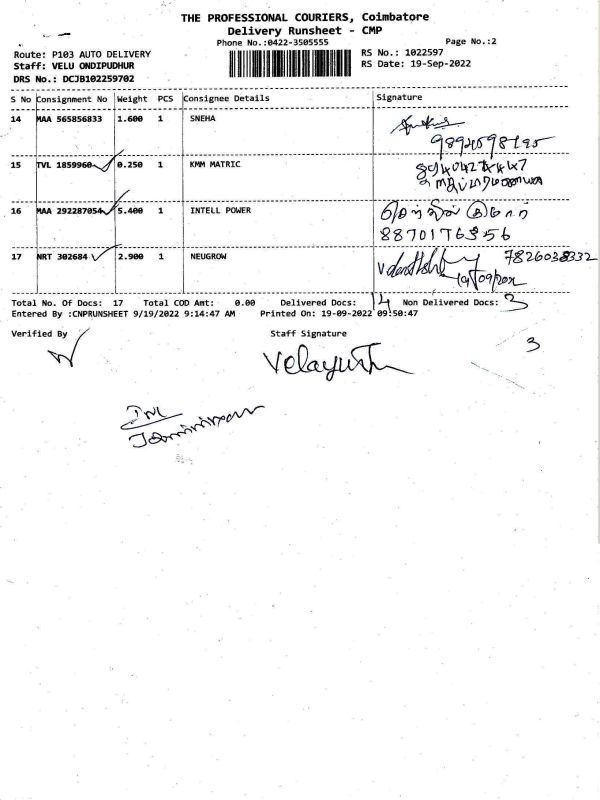 THE PROFESSIONAL COURIERS, Coimbatore
Delivery Runsheet - CMP
Phone No.:0422-3505555 Page No.:2
Route: P103 AUTO DELIVERY RS No.: 1022597
Staff: VELU ONDIPUDHUR RS Date: 19-Sep-2022
DRS No.: DCJB102259702
S No Consignment No Weight PCS Consignee Details Signature
14 MAA 565856833 1.600 1 SNEHA
15 TVL 1859960 0.250 1 KMM MATRIC
16 MAA 292287054 5.400 1 INTELL POWER
8870176356
17 NRT 302684 2.900 1 NEUGROW 7826038332
Total No. Of Docs: 17 Total COD Amt: 0.00 Delivered Docs: 14 Non Delivered Docs: 3
Entered By :CNPRUNSHEET 9/19/2022 9:14:47 AM Printed On: 19-09-2022 09:50:47
Verified By Staff Signature
3